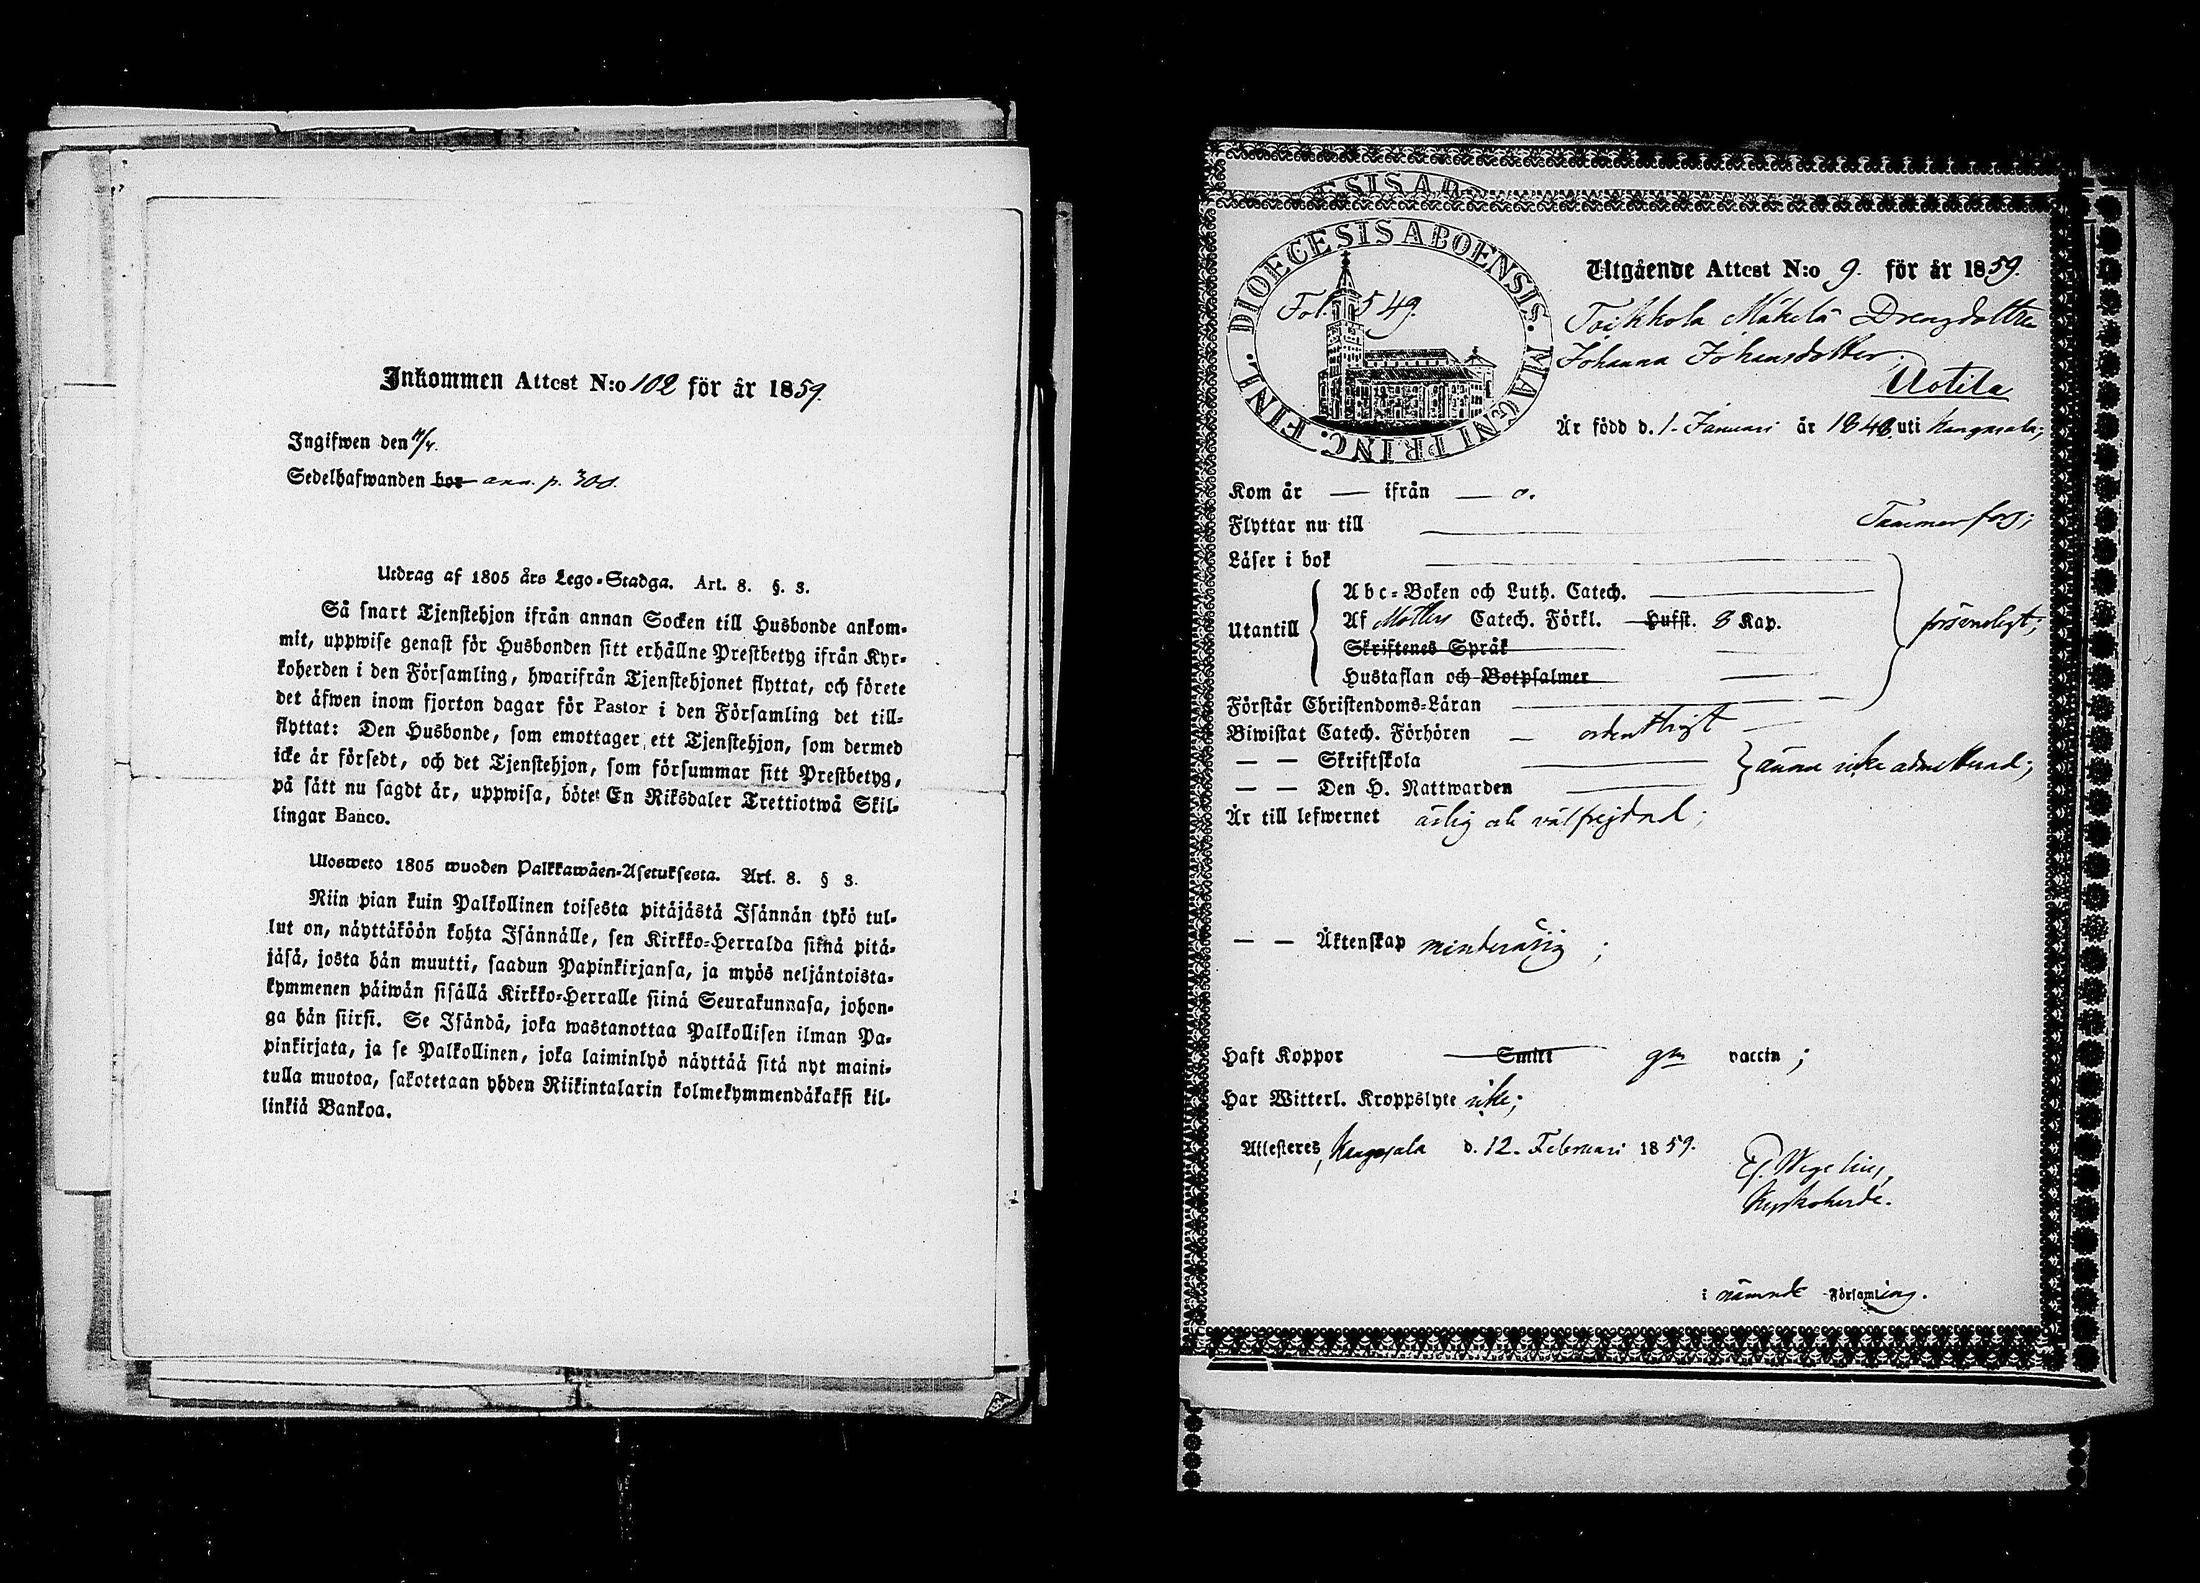 Inkommen Attest N:o 102 för år 1859.
Ingifwen den 11/4.
Sedelhafwanden bor ann. p. 300.
Utdrag af 1805 års Lego-Stadga. Art. 8. §. 3.
Så snart Tjenstehjon ifrån annan Socken till Husbonde ankom-
mit, uppwise genast för Husbonden sitt erhållne Prestbetyg ifrån Kyr-
koherden i den Församling, hwarifrån Tjenstehjonet flyttat, och förete
det äfwen inom fjorton dagar för Pastor i den Församling det till-
flyttat: Den Husbonde, som emottager ett Tjenstehjon, som dermed
icke är försedt, och det Tjenstehjon, som försummar sitt Prestbetyg,
på sätt nu sagdt är, uppwisa, böte: En Riksdaler Trettiotwå Skil-
lingar Banco.
Ulosweto 1805 wuoden Palkkawäen-Asetuksesta. Art. 8. § 3.
Niin pian kuin Palkollinen toisesta pitäjästä Isännän tykö tul-
lut on, näyttäköön kohta Isännälle, sen Kirkko-Herralda siinä pitä-
jäsä, josta hän muutti, saadun Papinkirjansa, ja myös neljäntoista-
kymmenen päiwän sisällä Kirkko-Herralle siinä Seurakunnasa, johon-
ga hän siirsi. Se Isändä, joka wastanottaa Palkollisen ilman Pa-
pinkirjata, ja se Palkollinen, joka laiminlyö näyttää sitä nyt maini-
tulla muotoa, sakotetaan yhden Riikintalarin kolmekymmendäkaksi kil-
linkiä Bankoa.
DIOECESIS ABOENSIS. MAGNI PRINC. FINL.
Fol. 549.
Utgående Attest N:o 9. för år 1859.
Toikkola Mäkelä Drengdottren
Johanna Johansdotter.
Uotila
Är född d. 1. Januari år 1848. uti Kangasala;
Kom år — ifrån — o.
Flyttar nu till Tammerfors;
Läser i bok
Utantill
Abc-Boken och Luth. Catech.
Af Möllers Catech. Förkl. Hufst. 8 Kap.
Skriftenes Språk
Hustaflan och Botpsalmer
försvarligt;
Förstår Christendoms-Läran
Biwistat Catech. Förhören — ordentligt
— — Skriftskola
— — Den H. Nattwarden
ännu icke admitterad;
Är till lefwernet ärlig och välfrejdad;
— — Äktenskap minderårig;
Haft Koppor Smitt gm vaccin;
Har Witterl. Kroppslyte icke;
Attesteres, Kangasala d. 12. Februari 1859.
Ej. Wegelius,
Kyrkoherde.
i nämnde Församling.